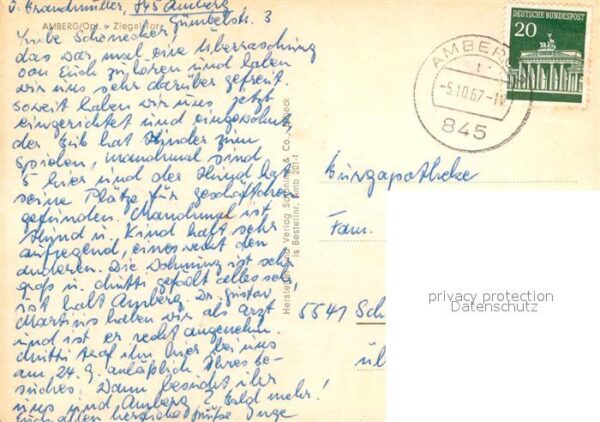 v. Brandmüller, 845 Amberg
Gümbelstr. 3
AMBERG/Opf. Ziegeltor
Liebe Schönecker
das war mal eine Überraschung
von Euch zu hören und haben
wir uns sehr darüber gefreut.
soweit haben wir uns jetzt
eingerichtet und eingewöhnt
der Bub hat Kinder zum
spielen, manchmal sind
5 hier und der Hund hat
seine Plätze für Geschäftchen
gefunden. Manchmal ist
Hund u. Kind halt sehr
aufregend, eines wegen den
anderen. Die Wohnung ist sehr
groß u. gefällt alles sehr,
ist halt Amberg. Dr. Gustav
Martius haben wir als Arzt
und ist er recht angenehm.
traf ihn hier bei uns
am 24. 9. anläßlich Ihres Be-
suches. Wann besucht ihr
uns und Amberg? Bald mehr!
Euch allen herzliche Grüße Inge
Hersteller und Verlag Schöning & Co., Lübeck
Bestellnr. Amb 201-f
DEUTSCHE BUNDESPOST
20
AMBERG
t
-5.10.67-1
845
Burgapotheke
Fam.
5541 Sch
üb
privacy protection
Datenschutz